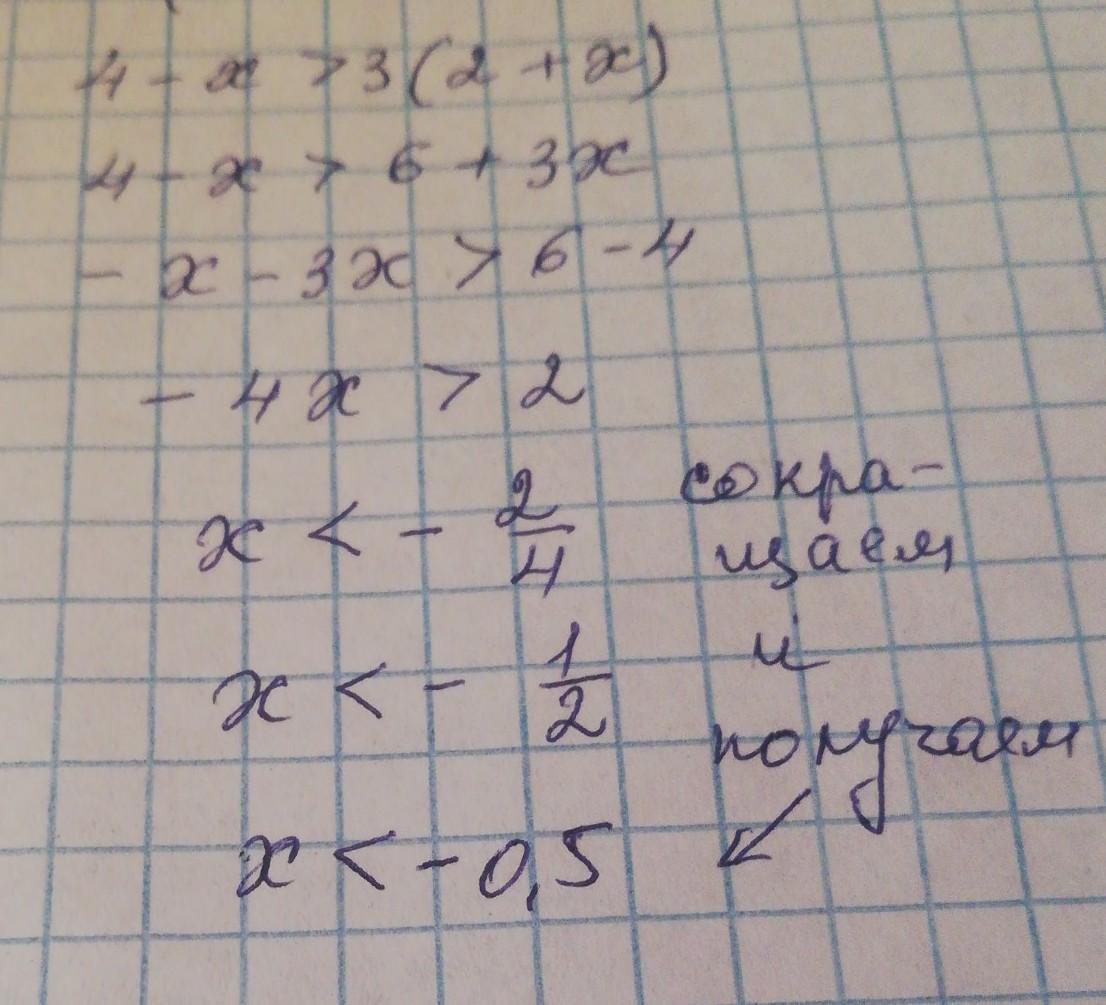 4 - x > 3(2 + x)
4 - x > 6 + 3x
- x - 3x > 6 - 4
- 4x > 2
x < - 2/4
сокра-
щаем
и
x < - 1/2
получаем
x < - 0,5